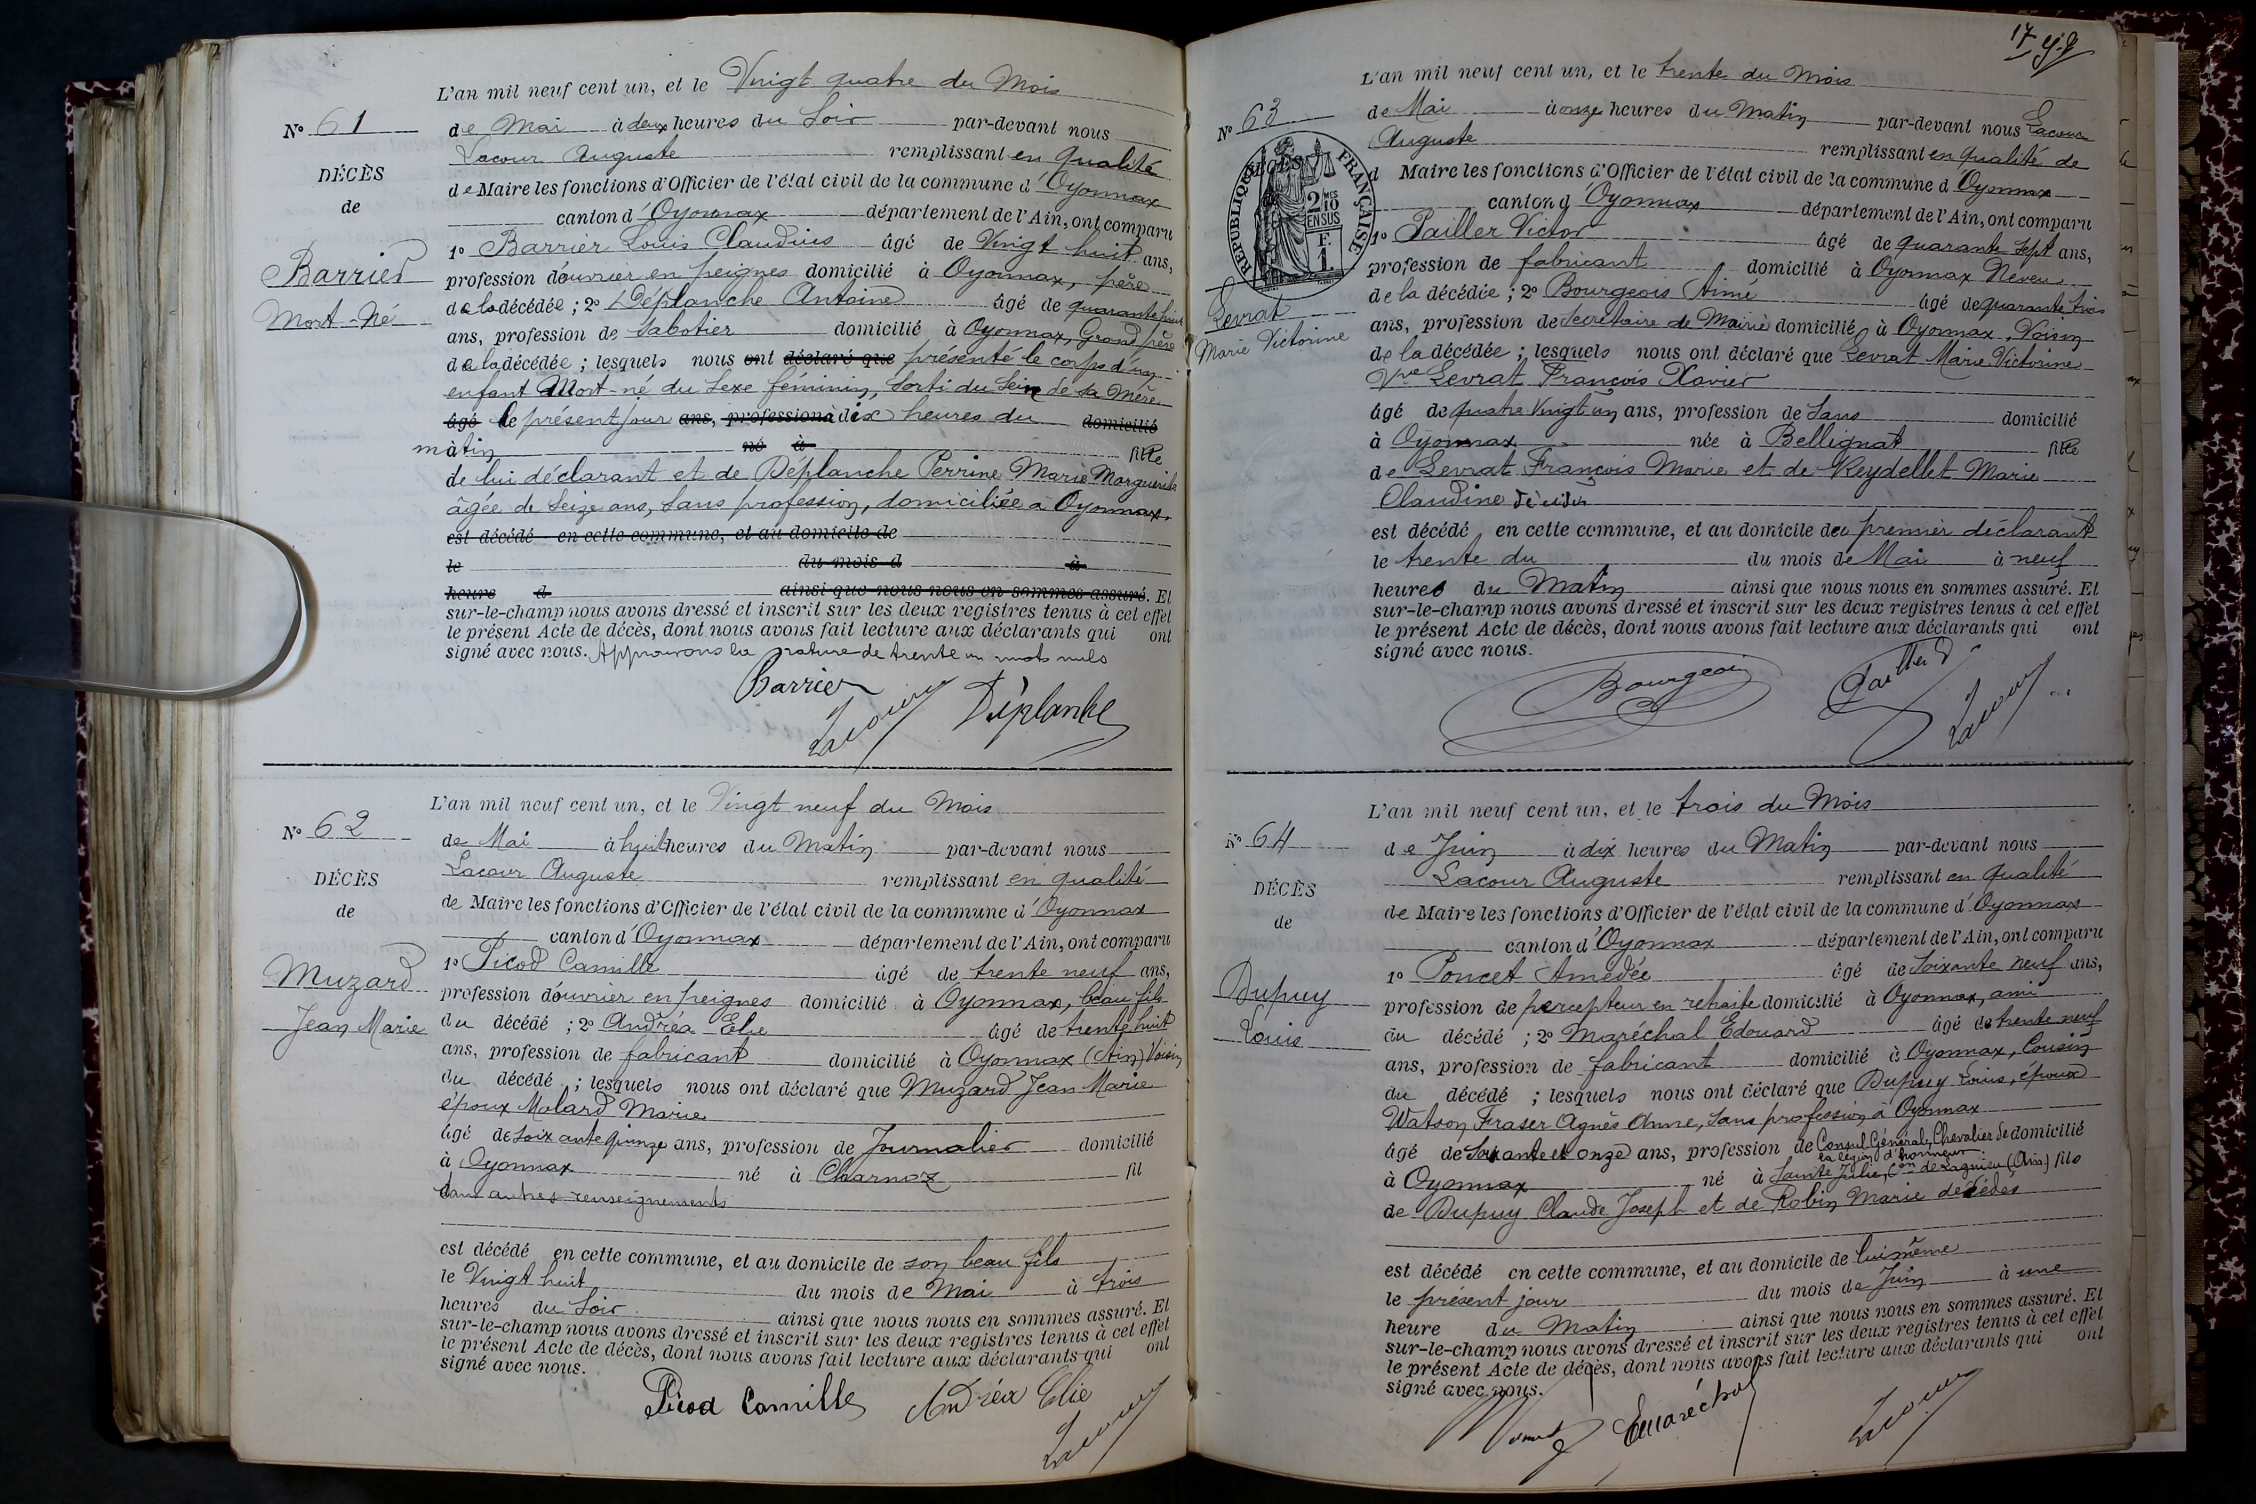 L'an mil neuf cent un, et le Vingt quatre du Mois
N° 61
de Mai à deux heures du Soir par-devant nous
Lacour Auguste remplissant en qualité
DÉCÈS
de Maire les fonctions d'Officier de l'état civil de la commune d'Oyonnax
de
canton d'Oyonnax département de l'Ain, ont comparu
1° Barrier Louis Claudius âgé de Vingt huit ans,
Barrier
profession d'ouvrier en peignes domicilié à Oyonnax, père
Mort-Né
de la décédée ; 2° Déplanche Antoine âgé de quarante huit
ans, profession de Sabotier domicilié à Oyonnax, Grand père
de la décédée ; lesquels nous ont déclaré que présenté le corps d'un
enfant Mort-né du Sexe féminin, Sorti du Sein de sa Mère
âgé le présent jour ans, profession à dix heures du domicilié
matin né à fille
de lui déclarant et de Déplanche Perrine Marie Marguerite
âgée de Seize ans, Sans profession, domiciliée à Oyonnax.
est décédé en cette commune, et au domicile de
le du mois d à
heure d ainsi que nous nous en sommes assuré. Et
sur-le-champ nous avons dressé et inscrit sur les deux registres tenus à cet effet
le présent Acte de décès, dont nous avons fait lecture aux déclarants qui ont
signé avec nous. Approuvons la rature de trente un mots nuls
Barrier
Lacour Déplanche
L'an mil neuf cent un, et le Vingt neuf du Mois
N° 62
de Mai à huit heures du Matin par-devant nous
Lacour Auguste remplissant en qualité
DÉCÈS
de Maire les fonctions d'Officier de l'état civil de la commune d'Oyonnax
de
canton d'Oyonnax département de l'Ain, ont comparu
1° Picod Camille âgé de trente neuf ans,
Muzard
profession d'ouvrier en peignes domicilié à Oyonnax, beau fils
Jean Marie
du décédé ; 2° Andréa Elie âgé de trente huit
ans, profession de fabricant domicilié à Oyonnax (Ain) Voisin
du décédé ; lesquels nous ont déclaré que Muzard Jean Marie
époux Molard Marie
âgé de Soixante quinze ans, profession de Journalier domicilié
à Oyonnax né à Charnoz fil
Sans autres renseignements
est décédé en cette commune, et au domicile de son beau fils
le Vingt huit du mois de Mai à trois
heures du Soir ainsi que nous nous en sommes assuré. Et
sur-le-champ nous avons dressé et inscrit sur les deux registres tenus à cet effet
le présent Acte de décès, dont nous avons fait lecture aux déclarants qui ont
signé avec nous.
Picod Camille Andréa Elie
Lacour
17
L'an mil neuf cent un, et le trente du Mois
N° 63
de Mai à onze heures du Matin par-devant nous Lacour
Auguste remplissant en qualité de
DÉCÈS
RÉPUBLIQUE FRANÇAISE
2 MES 10 EN SUS
F. 1.
d Maire les fonctions d'Officier de l'état civil de la commune d'Oyonnax
canton d'Oyonnax département de l'Ain, ont comparu
1° Pailler Victor âgé de quarante Sept ans,
profession de fabricant domicilié à Oyonnax Neveu
Levrat
Marie Victorine
de la décédée ; 2° Bourgeois Aimé âgé de quarante trois
ans, profession de Secrétaire de Mairie domicilié à Oyonnax, Voisin
de la décédée ; lesquels nous ont déclaré que Levrat Marie Victorine
Vve Levrat François Xavier
âgé de quatre Vingt un ans, profession de Sans domicilié
à Oyonnax née à Bellignat fille
de Levrat François Marie et de Reydellet Marie
Claudine décédés
est décédé en cette commune, et au domicile du premier déclarant
le trente du du mois de Mai à neuf
heures du Matin ainsi que nous nous en sommes assuré. Et
sur-le-champ nous avons dressé et inscrit sur les deux registres tenus à cet effet
le présent Acte de décès, dont nous avons fait lecture aux déclarants qui ont
signé avec nous.
Bourgeois Lacour
L'an mil neuf cent un, et le trois du Mois
N° 64
de Juin à dix heures du Matin par-devant nous
Lacour Auguste remplissant en qualité
DÉCÈS
de Maire les fonctions d'Officier de l'état civil de la commune d'Oyonnax
de
canton d'Oyonnax département de l'Ain, ont comparu
1° Poncet Amédée âgé de Soixante neuf ans,
Dupuy
profession de percepteur en retraite domicilié à Oyonnax, ami
Louis
du décédé ; 2° Maréchal Edouard âgé de trente neuf
ans, profession de fabricant domicilié à Oyonnax, Cousin
du décédé ; lesquels nous ont déclaré que Dupuy Louis, époux
Watson Fraser Agnès Anne, Sans profession à Oyonnax
âgé de Soixante et onze ans, profession de Consul Général, Chevalier de domicilié
la légion d'honneur
à Oyonnax né à Sainte Julie, Con de Lagnieu (Ain) fils
de Dupuy Claude Joseph et de Robin Marie décédés
est décédé en cette commune, et au domicile de lui même
le présent jour du mois de Juin à une
heure du Matin ainsi que nous nous en sommes assuré. Et
sur-le-champ nous avons dressé et inscrit sur les deux registres tenus à cet effet
le présent Acte de décès, dont nous avons fait lecture aux déclarants qui ont
signé avec nous.
E Maréchal Lacour